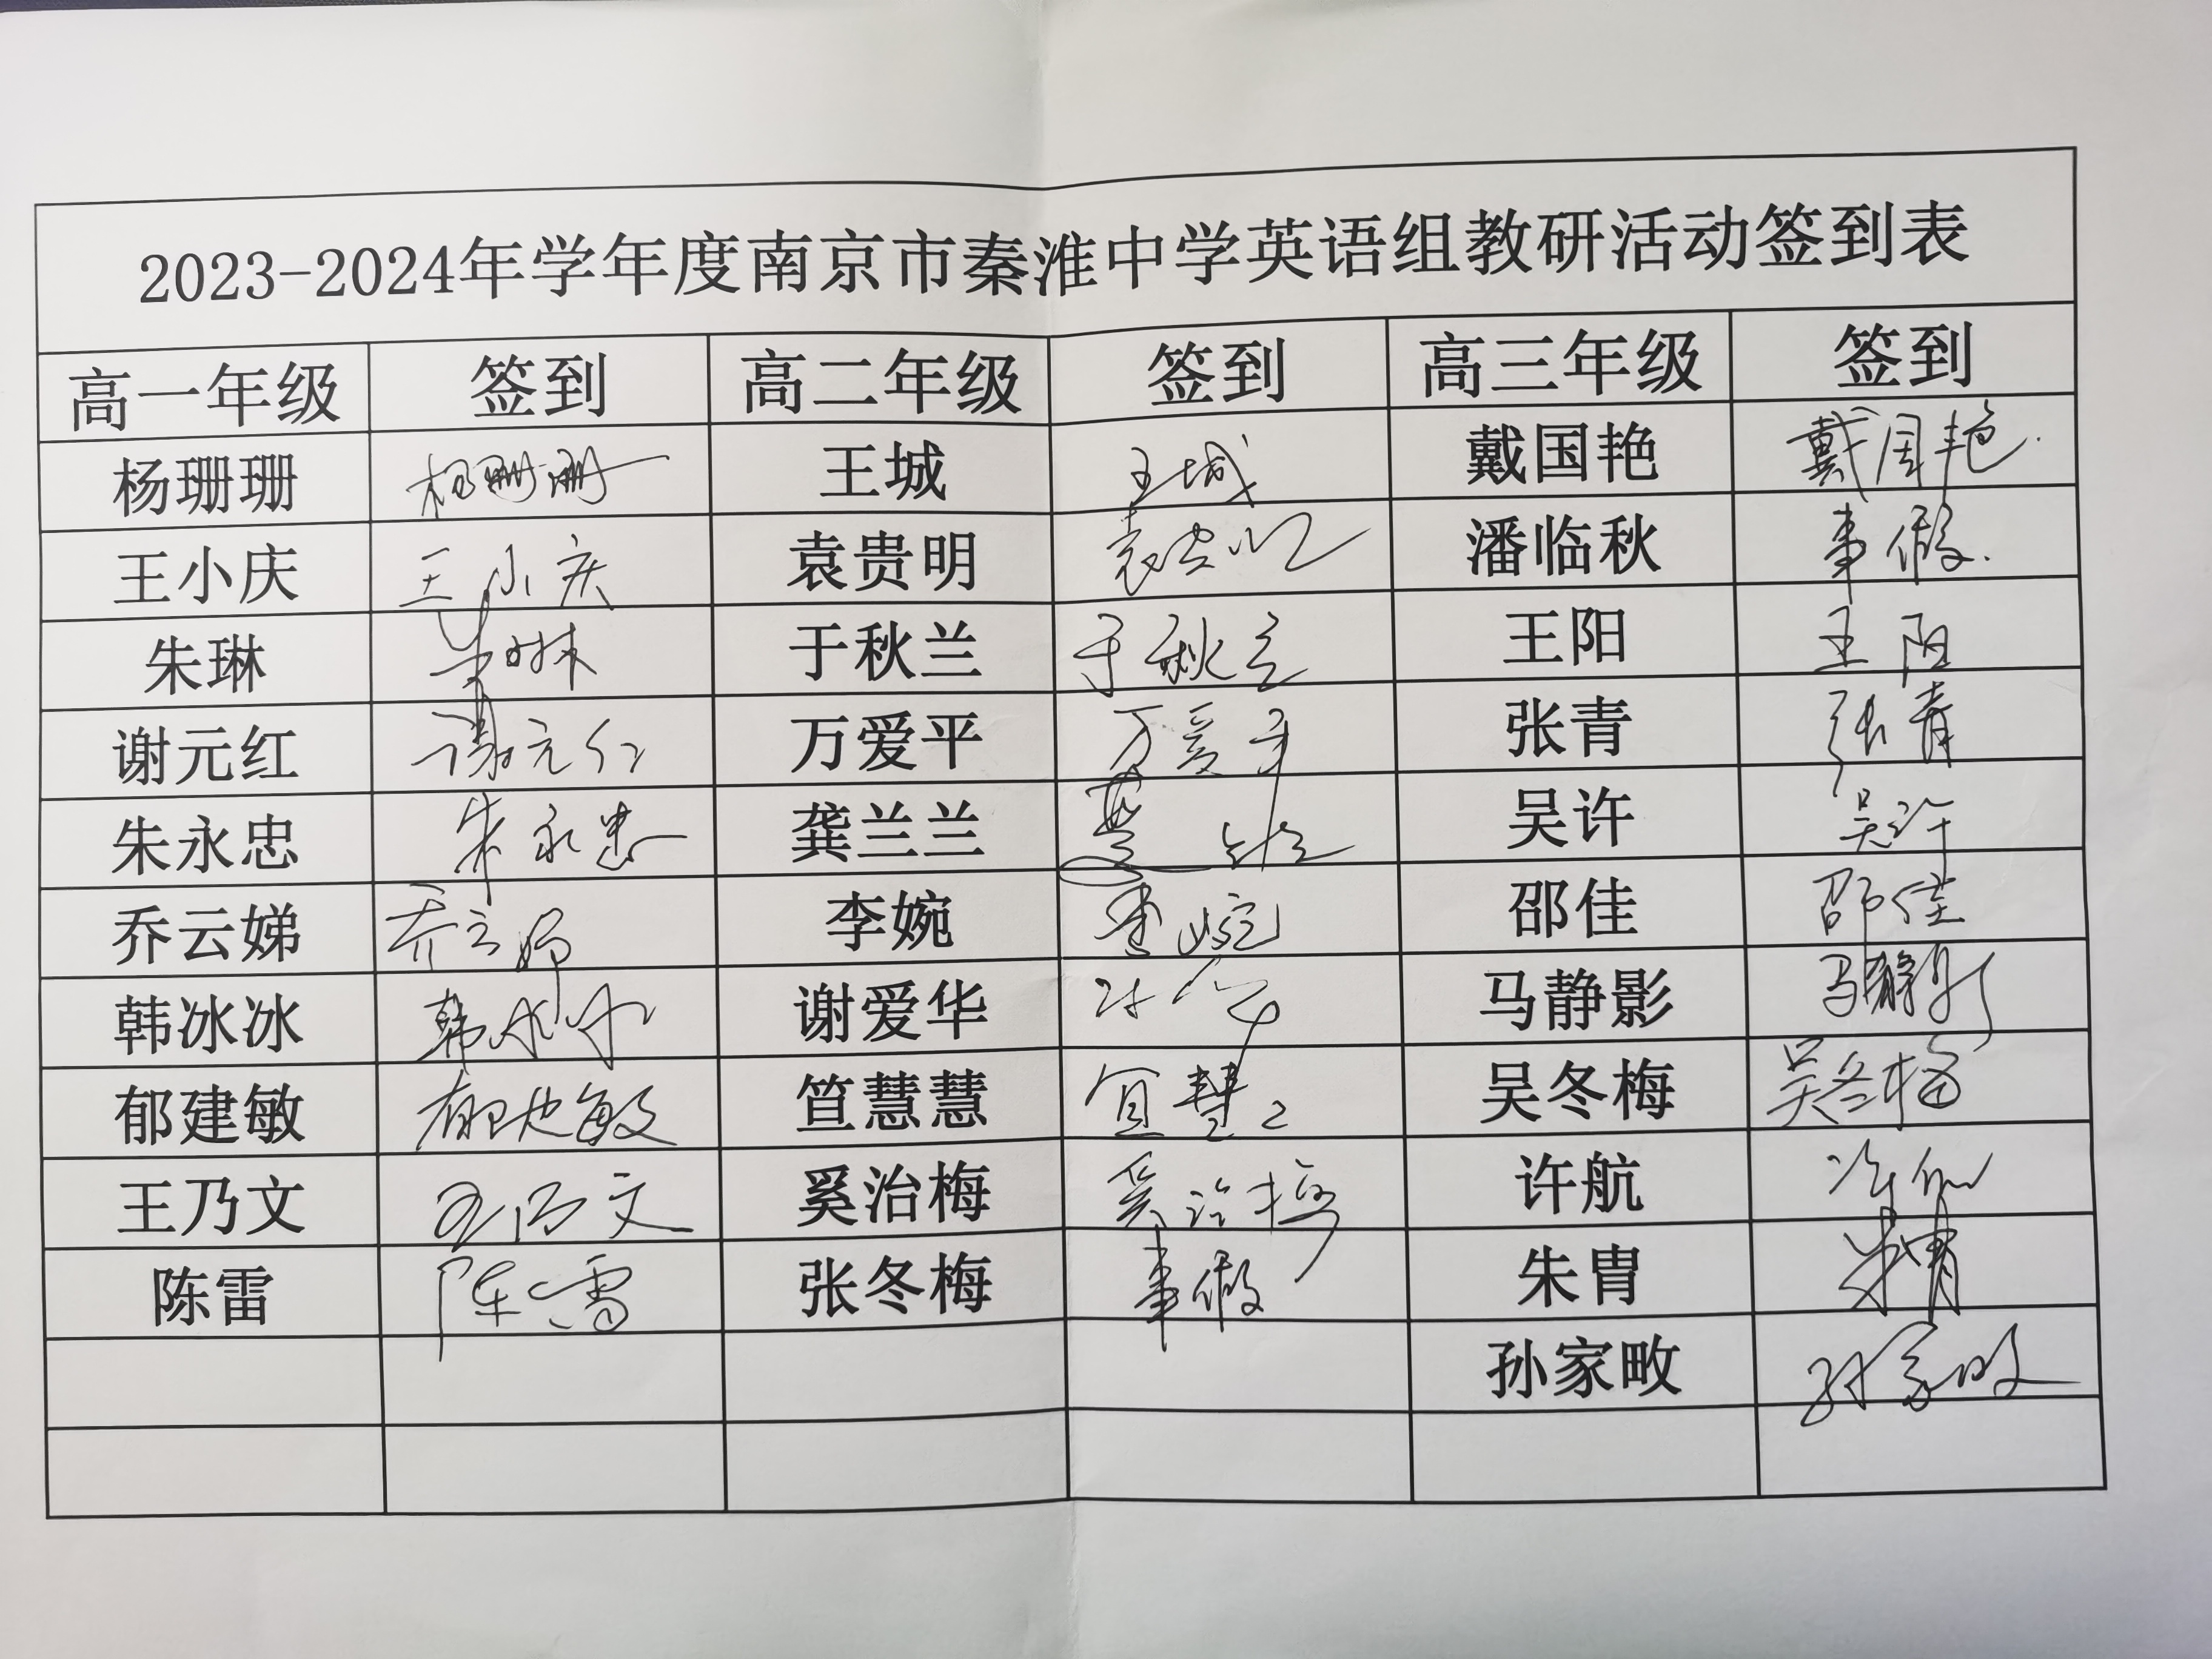 2023-2024年学年度南京市秦淮中学英语组教研活动签到表
高一年级 签到 高二年级 签到 高三年级 签到
杨珊珊 杨珊珊 王城 王城 戴国艳 戴国艳
王小庆 王小庆 袁贵明 袁贵明 潘临秋 事假
朱琳 朱琳 于秋兰 于秋兰 王阳 王阳
谢元红 谢元红 万爱平 万爱平 张青 张青
朱永忠 朱永忠 龚兰兰 吴许 吴许
乔云娣 乔云娣 李婉 李婉 邵佳 邵佳
韩冰冰 韩冰冰 谢爱华 马静影 马静影
郁建敏 郁建敏 笪慧慧 笪慧慧 吴冬梅 吴冬梅
王乃文 王乃文 奚治梅 奚治梅 许航 许航
陈雷 陈雷 张冬梅 事假 朱胄 朱胄
孙家畋 孙家畋